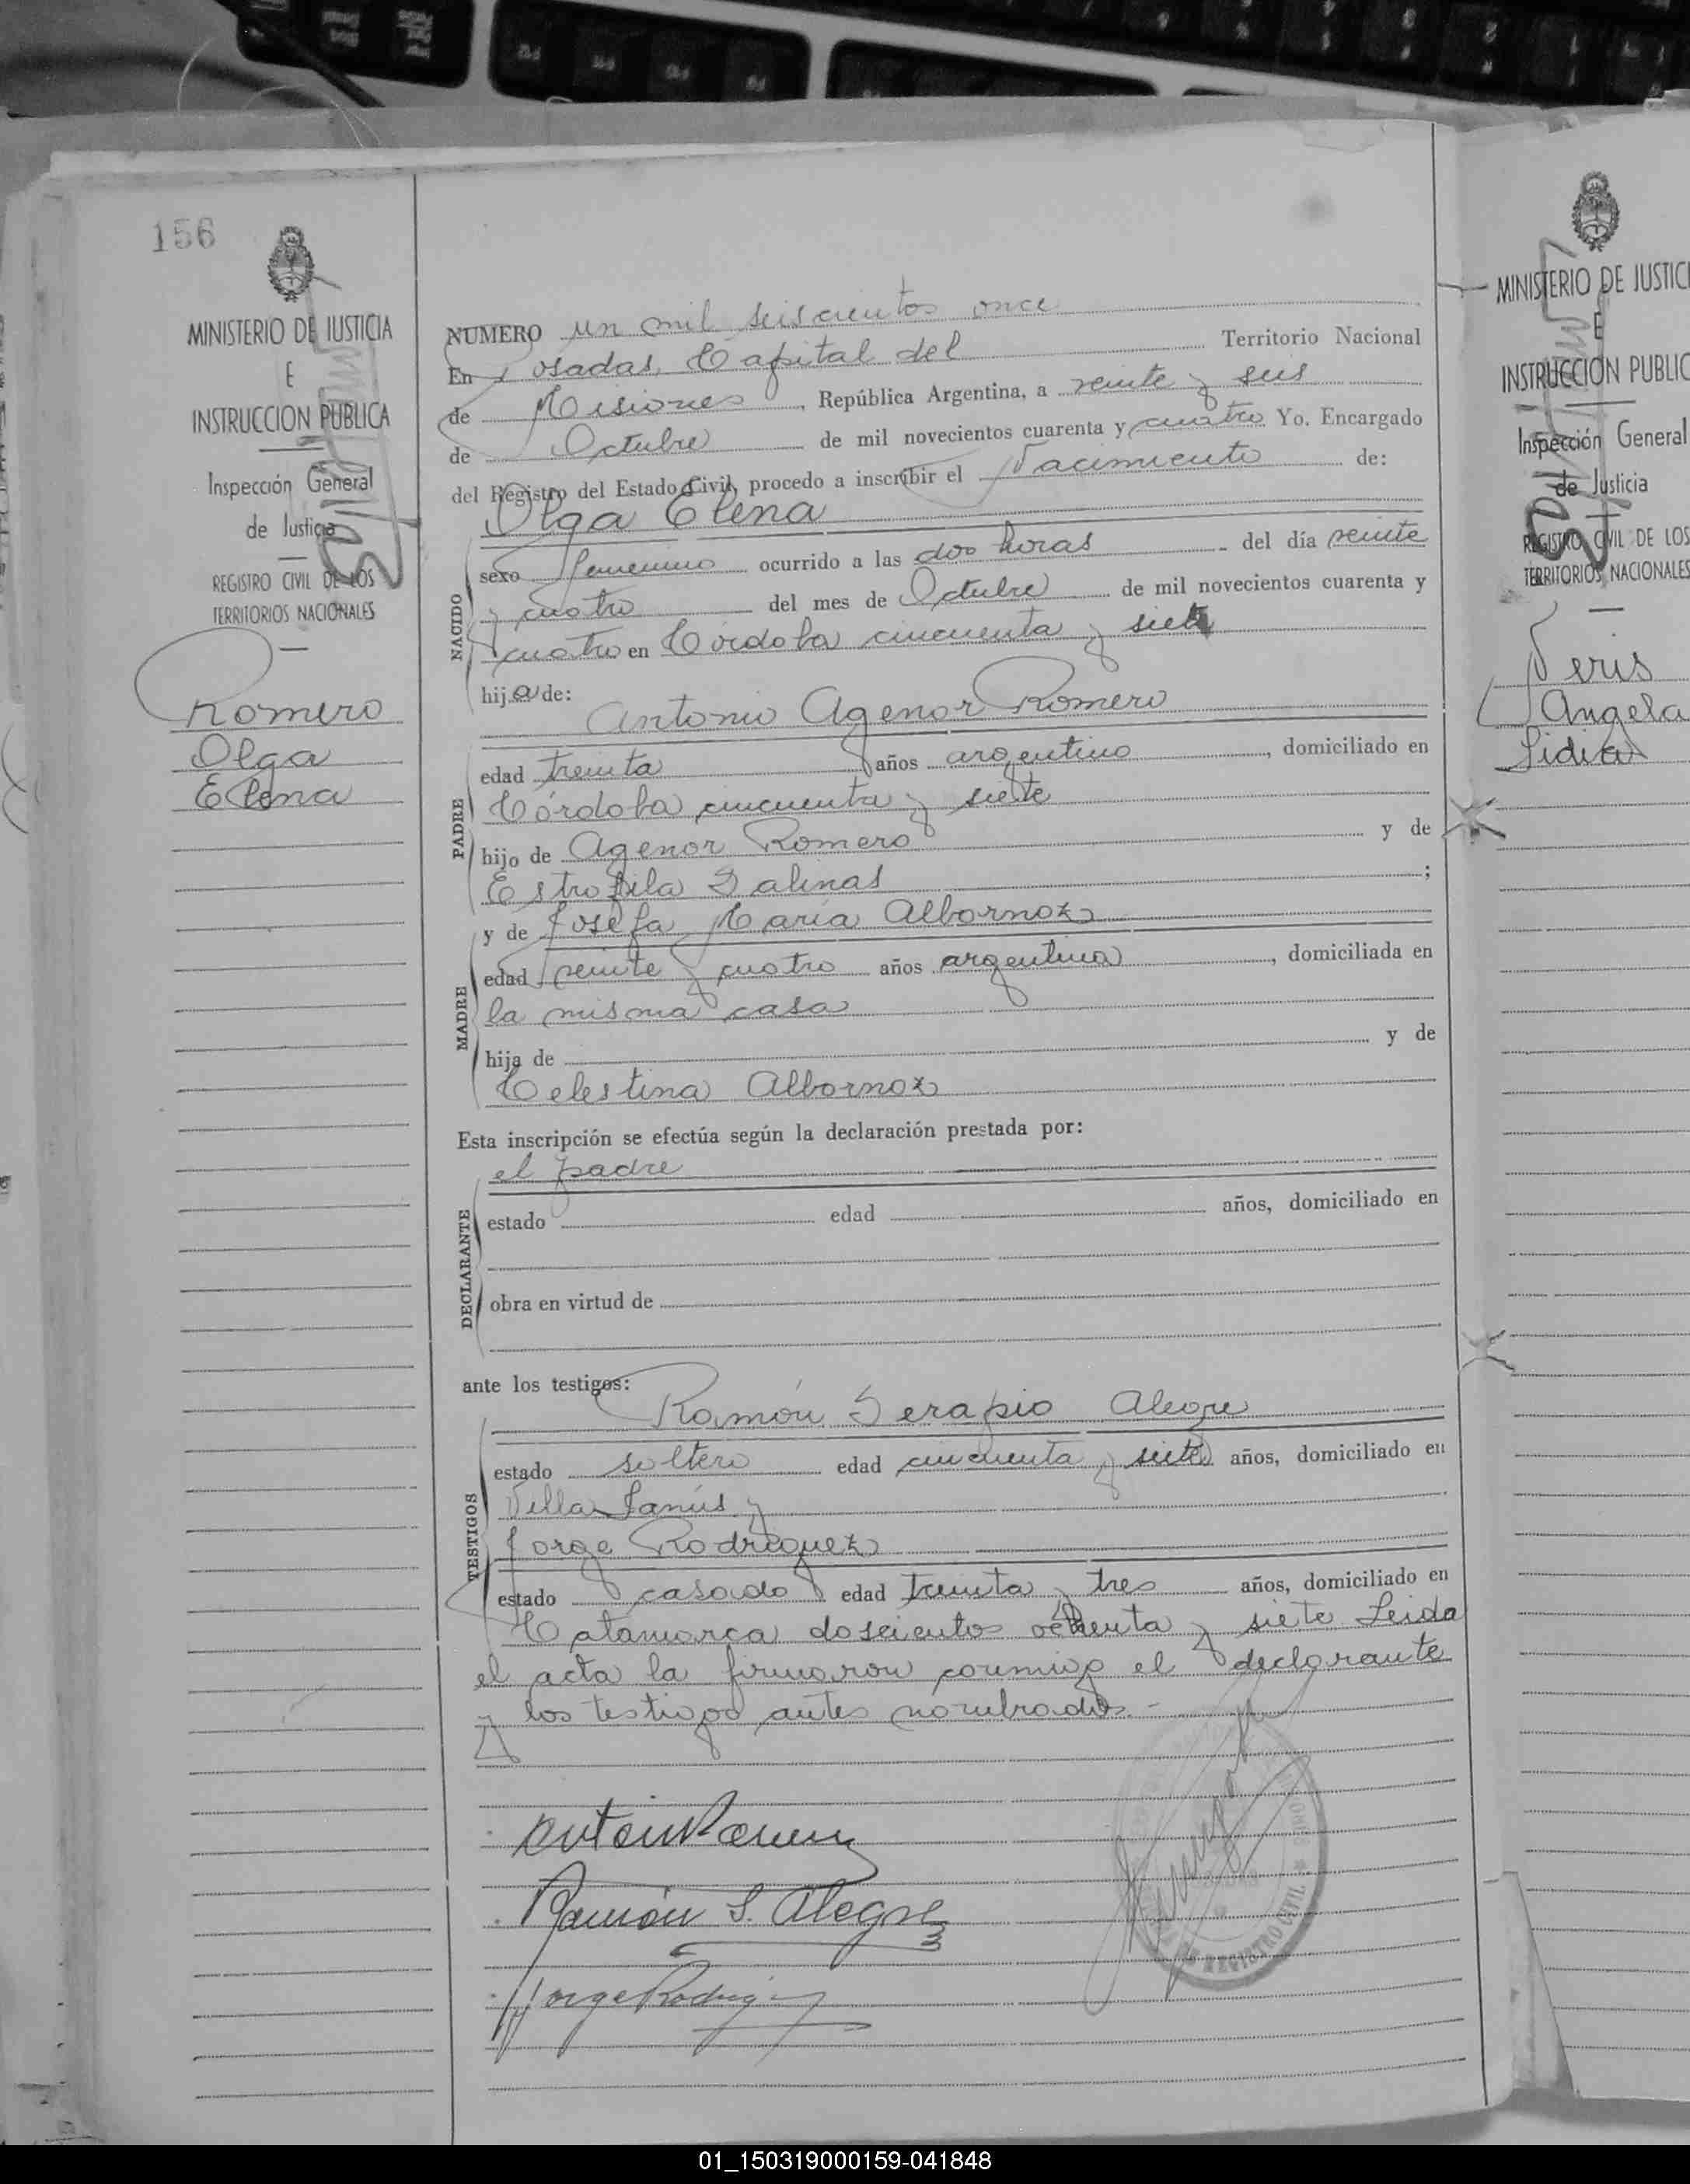 156
MINISTERIO DE JUSTICIA
E
INSTRUCCION PUBLICA
Inspección General
de Justicia
REGISTRO CIVIL DE LOS
TERRITORIOS NACIONALES
Romero
Olga
Elena
NUMERO un mil seiscientos once
En Posadas, Capital del Territorio Nacional
de Misiones, República Argentina, a veinte y seis
de Octubre de mil novecientos cuarenta y cuatro Yo. Encargado
del Registro del Estado Civil, procedo a inscribir el Nacimiento de:
Olga Elena
NACIDO
sexo femenino ocurrido a las dos horas del día veinte
y cuatro del mes de Octubre de mil novecientos cuarenta y
cuatro en Córdoba cincuenta y siete
hija de:
Antonio Agenor Romero
PADRE
edad treinta años argentino, domiciliado en
Córdoba cincuenta y siete
hijo de Agenor Romero y de
Estrofila Salinas ;
y de Josefa María Albornoz
MADRE
edad veinte y cuatro años argentina, domiciliada en
la misma casa
hija de y de
Celestina Albornoz
Esta inscripción se efectúa según la declaración prestada por:
el padre
DECLARANTE
estado edad años, domiciliado en
obra en virtud de
ante los testigos:
Ramón Serapio Alegre
TESTIGOS
estado soltero edad cincuenta y siete años, domiciliado en
Villa Lanús y
Jorge Rodriguez
estado casado edad treinta y tres años, domiciliado en
Catamarca doscientos ochenta y siete Leida
el acta la firmaron conmigo el declarante
y los testigos antes nombrados.-
Ramón S. Alegre
Jorge Rodrig
REGISTRO CIVIL
MINISTERIO DE JUSTICI
E
INSTRUCCION PUBLIC
Inspección General
de Justicia
REGISTRO CIVIL DE LOS
TERRITORIOS NACIONALES
Neris
Angela
Lidia
01_150319000159-041848